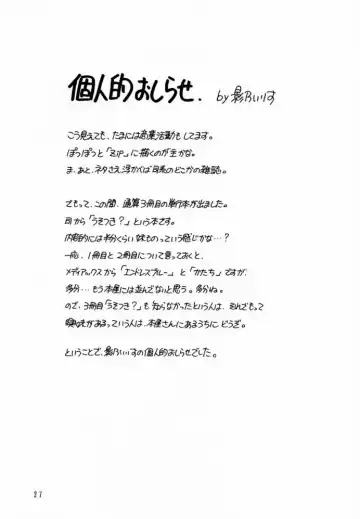 個人的おしらせ.
by 影乃いりす
こう見えても、たまには商業活動もしてます。
ぽっぽっと「ZIP」に描くのが主かな。
ま、あと、ネタさえ浮かべば司系のどこかの雑誌。
さもって、この間、通算3冊目の単行本が出ました。
司から「うそつき?」という本です。
内容的には半分くらい妹ものっていう感じかな…?
一応、1冊目と2冊目について言っておくと、
メディアックスから「エンドレスブルー」と「かたち」ですが、
多分…もう本屋には並んでないと思う。多分ね。
ので、3冊目「うそつき?」も知らなかったという人は、
興味があるっていう人は、本屋さんにあるうちにどうぞ。
ということで、影乃いりすの個人的おしらせでした。
27